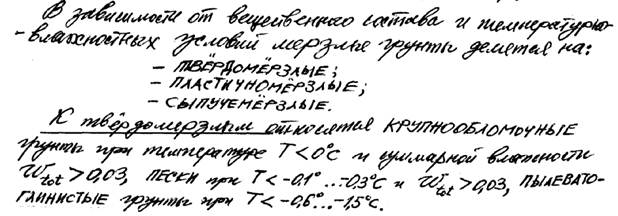 В зависимости от вещественного состава и температурно-
-влажностных условий мерзлые грунты делятся на:
– ТВЁРДОМЁРЗЛЫЕ;
– ПЛАСТИЧНОМЁРЗЛЫЕ;
– СЫПУЧЕМЁРЗЛЫЕ.
К твёрдомерзлым относятся КРУПНООБЛОМОЧНЫЕ
грунты при температуре T<0°C и суммарной влажности
Wtot>0,03, ПЕСКИ при T<-0,1°...-0,3°C и Wtot>0,03, ПЫЛЕВАТО-
ГЛИНИСТЫЕ грунты при T<-0,6°...-1,5°C.